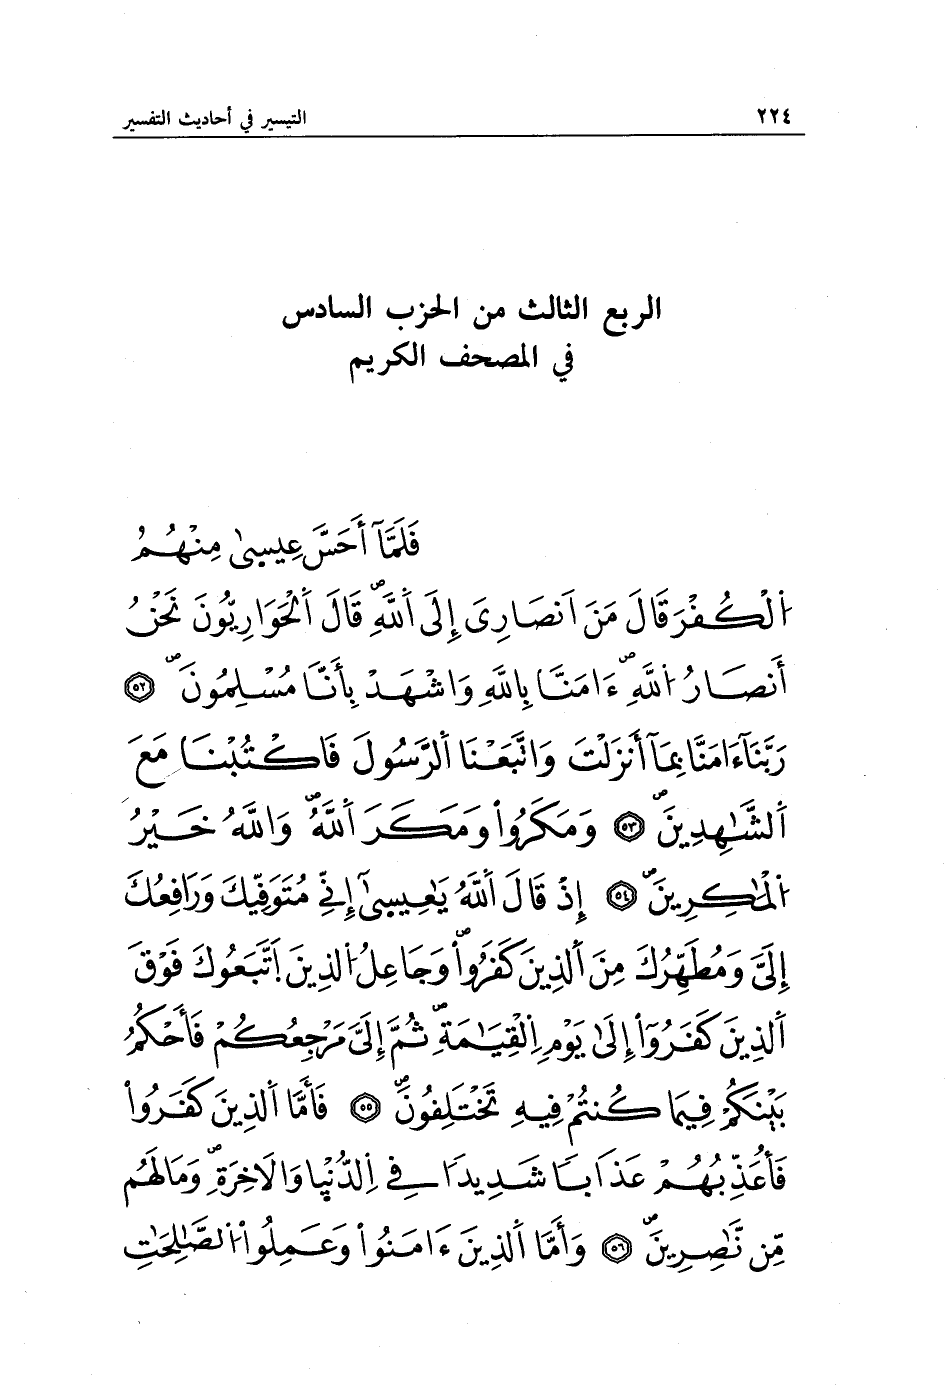 ٢٢٤ التيسير في أحاديث التفسير
الربع الثالث من الحزب السادس
في المصحف الكريم
فَلَمَّآ أَحَسَّ عِيسىٰ مِنْهُمُ
اُ۬لْكُفْرَ قَالَ مَنَ اَنصَارِيَ إِلَى اَ۬للَّهِۖ قَالَ اَ۬لْحَوَارِيُّونَ نَحْنُ
أَنصَارُ اُ۬للَّهِۖ ءَامَنَّا بِاللَّهِ وَاشْهَدْ بِأَنَّا مُسْلِمُونَۖ ٥٢
رَبَّنَآ ءَامَنَّا بِمَآ أَنزَلْتَ وَاتَّبَعْنَا اَ۬لرَّسُولَ فَاكْتُبْنَا مَعَ
اَ۬لشَّٰهِدِينَۖ ٥٣ وَمَكَرُواْ وَمَكَرَ اَ۬للَّهُۖ وَاللَّهُ خَيْرُ
اُ۬لْمَٰكِرِينَۖ ٥٤ إِذْ قَالَ اَ۬للَّهُ يَٰعِيسىٰٓ إِنِّے مُتَوَفِّيكَ وَرَافِعُكَ
إِلَيَّ وَمُطَهِّرُكَ مِنَ اَ۬لذِينَ كَفَرُواْۖ وَجَاعِلُ اُ۬لذِينَ اَ۪تَّبَعُوكَ فَوْقَ
اَ۬لذِينَ كَفَرُوٓاْ إِلَىٰ يَوْمِ اِ۬لْقِيَٰمَةِۖ ثُمَّ إِلَيَّ مَرْجِعُكُمْ فَأَحْكُمُ
بَيْنَكُمْ فِيمَا كُنتُمْ فِيهِ تَخْتَلِفُونَۖ ٥٥ فَأَمَّا اَ۬لذِينَ كَفَرُواْ
فَأُعَذِّبُهُمْ عَذَابًا شَدِيدًا فِے اِ۬لدُّنْيَا وَالَاخِرَةِۖ وَمَا لَهُم
مِّن نَّٰصِرِينَۖ ٥٦ وَأَمَّا اَ۬لذِينَ ءَامَنُواْ وَعَمِلُواْ اُ۬لصَّٰلِحَٰتِ